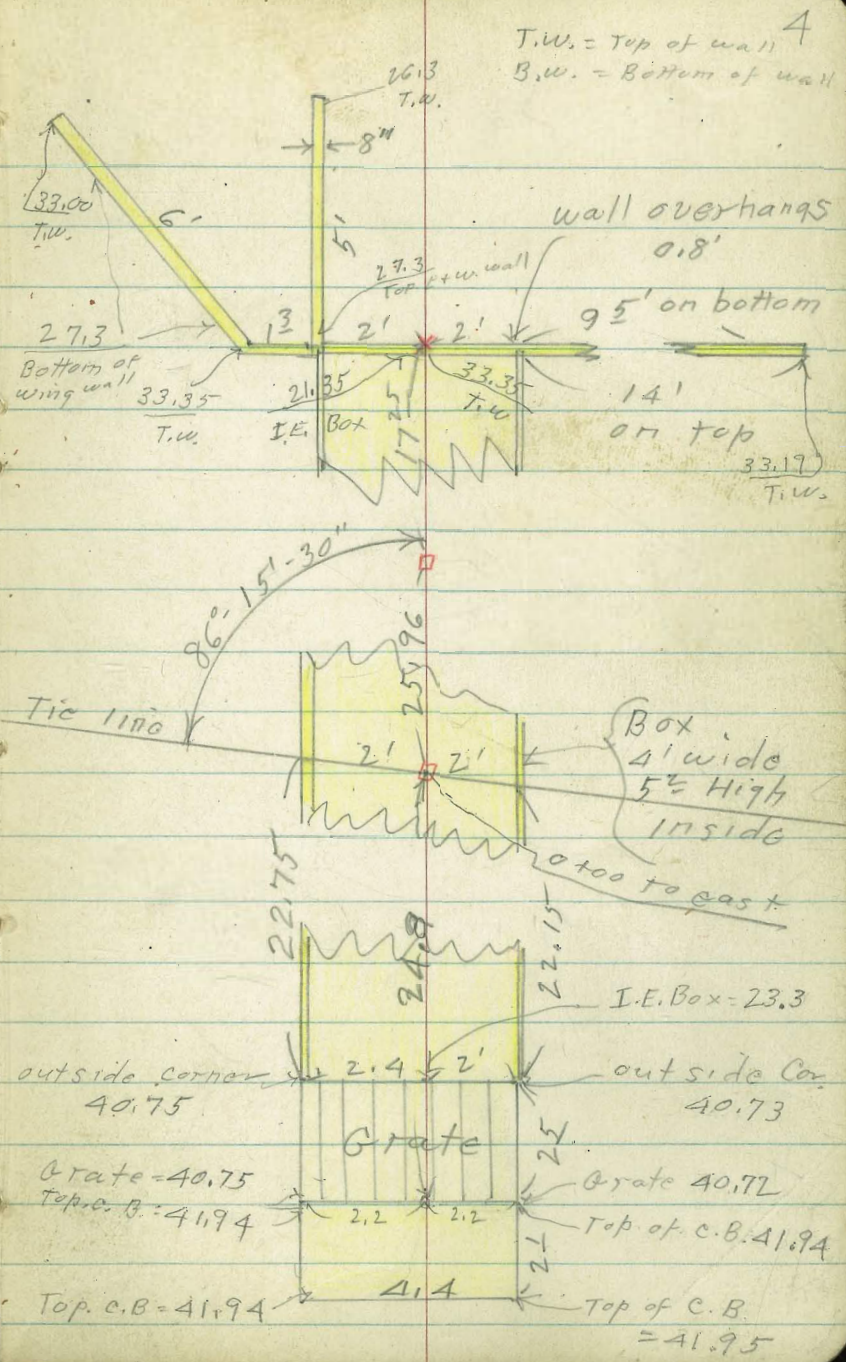 4
T.W. = Top of wall
B.W. = Bottom of wall
26.3
T.W.
8"
33.00
T.W.
6'
5'
wall overhangs
0.8'
27.3
Top wall
27.3
Bottom of
wing wall
1 3
2'
2'
9 5' on bottom
33.35
T.W.
21.35
I.E. Box
17 25
33.35
T.W
14'
on top
33.19
T.W.
86°-15'-30"
25.96
Tie line
2'
2'
Box
4' wide
5 2 High
inside
0+00 to east
22.75
24.8
22.15
I.E. Box = 23.3
outside corner
40.75
2.4
2'
outside Cor.
40.73
Grate
25
Grate = 40.75
Top. C.B. = 41.94
2.2
2.2
Grate 40.72
Top of C.B. 41.94
21
Top. C.B = 41.94
4.4
Top of C.B.
= 41.95